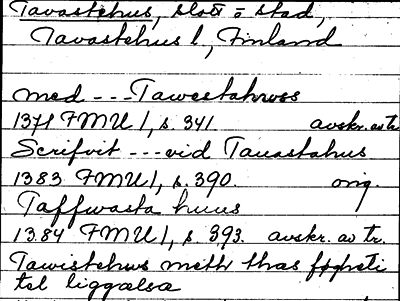 Tavastehus, slott o stad,
Tavastehus l, Finland
med --- Tawestahwss
1371 FMU 1, s. 341. avskr. av tr.
Scrifvit --- vid Tauastahus
1383 FMU 1, s. 390. orig.
Taffwasta huus
1384 FMU 1, s. 393. avskr. av tr.
Tawistehws meth thas
tel liggælsa